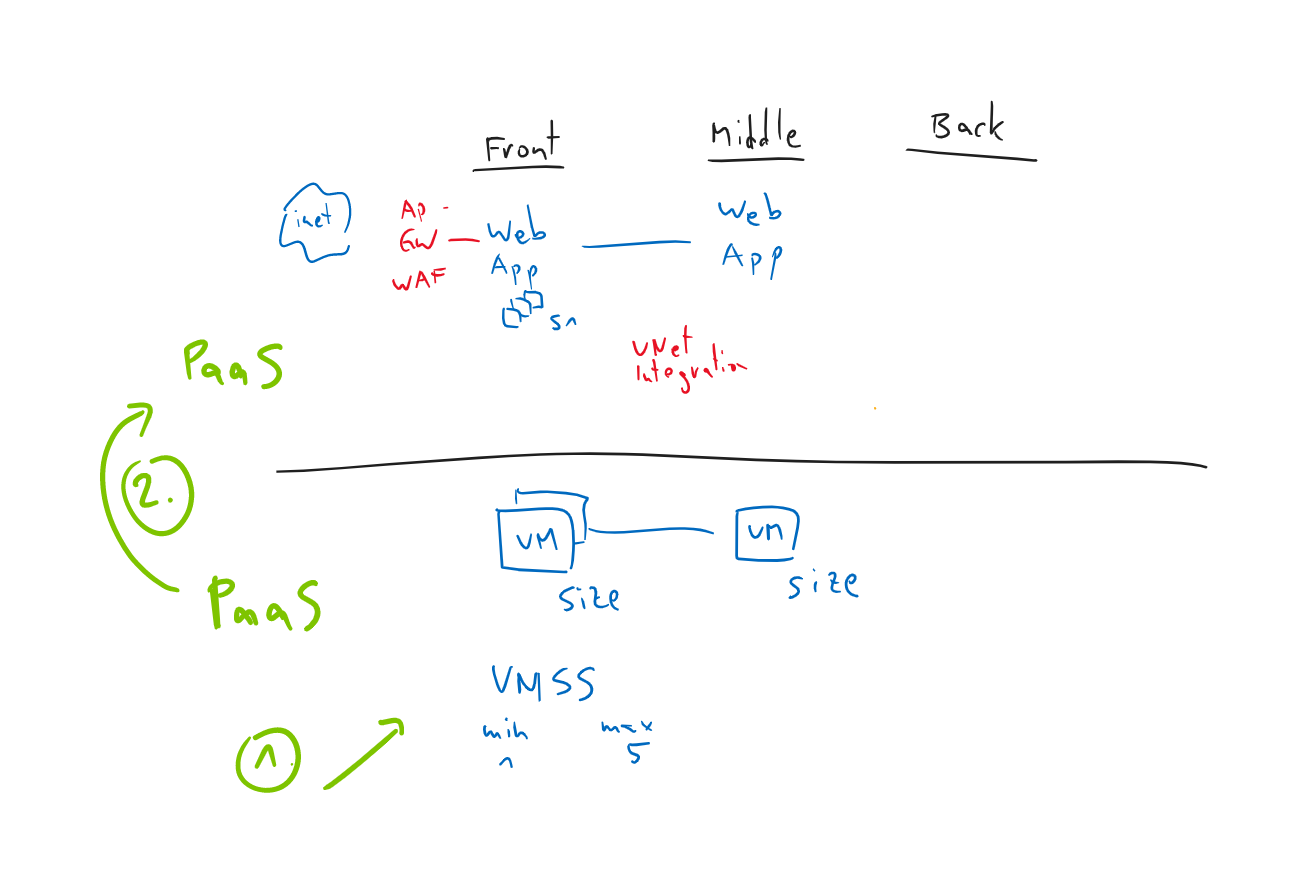 Front
Middle
Back
inet
Ap -
GW
WAF
Web
App
S1
Web
App
VNet
Integration
PaaS
2.
VM
size
VM
size
PaaS
VMSS
min
1
max
5
1.